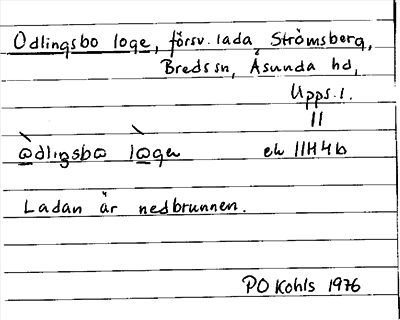 Odlingsbo loge, försv. lada, Strömsberg,
Breds sn, Åsunda hd,
Upps. l.
11
ꞷ̀dlingsbꞷ lꞷ̀gen ek 11H4b
Ladan är nedbrunnen.
PO Kohls 1976